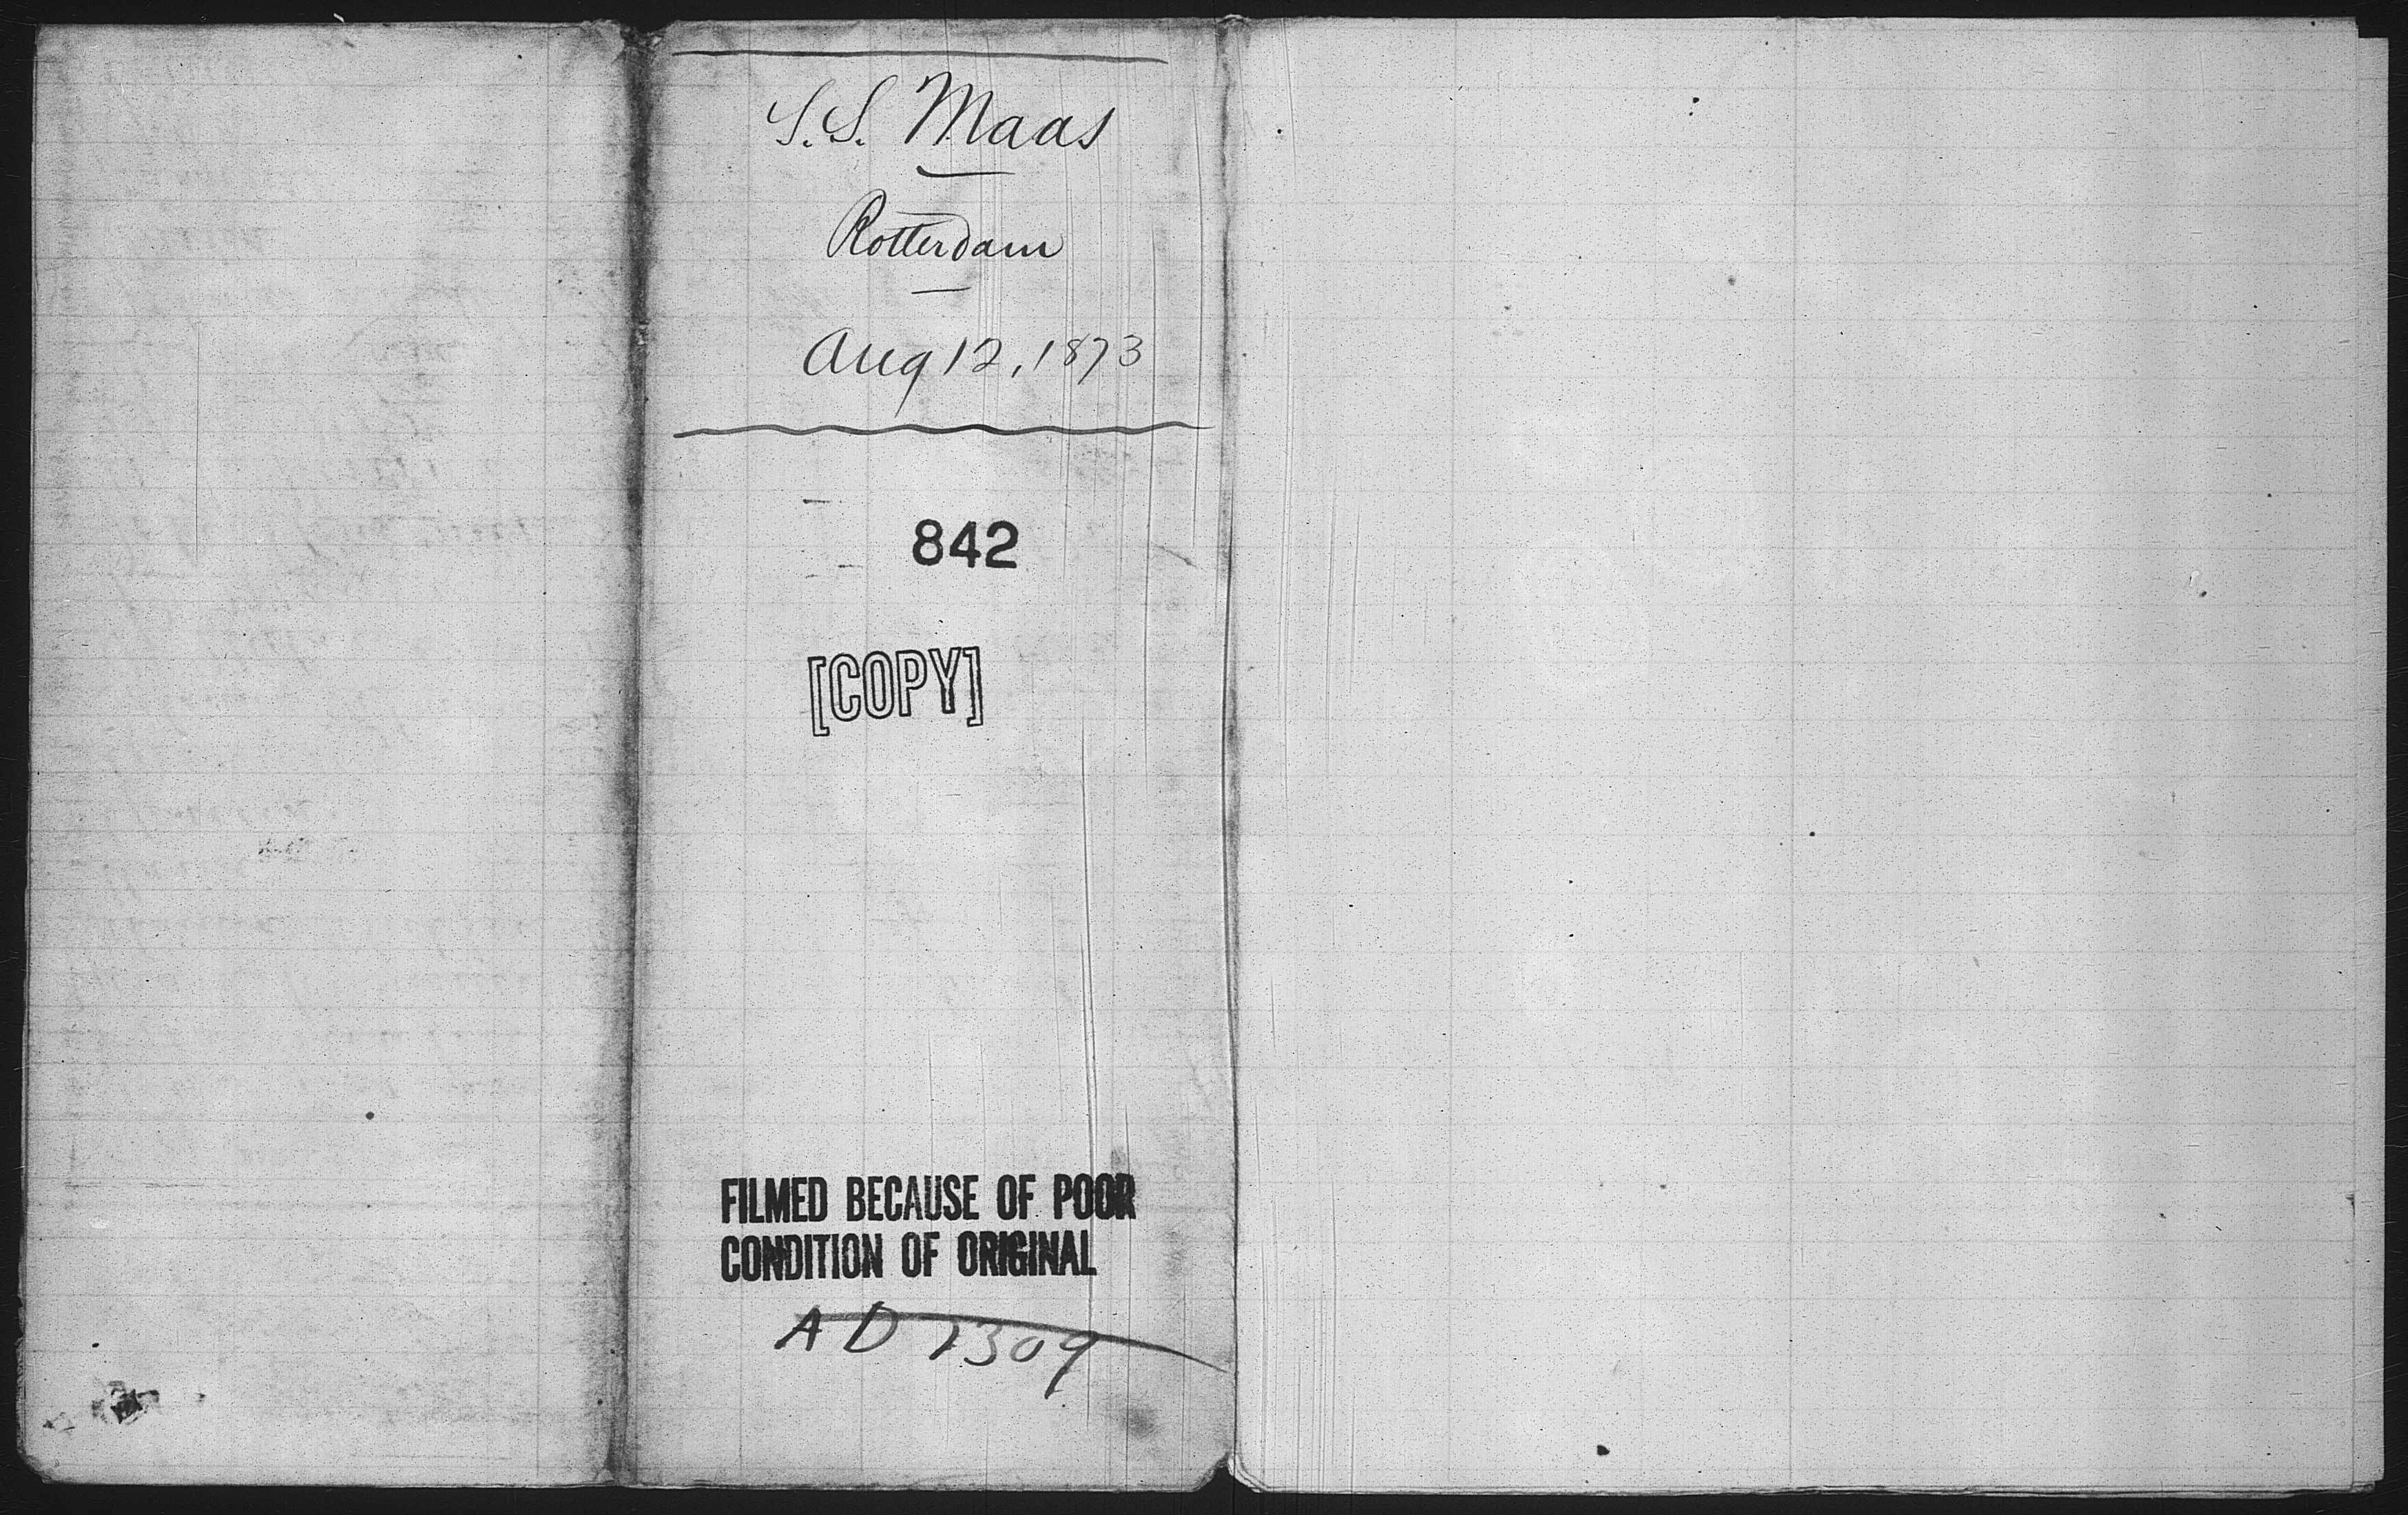 S.S. Maas
Rotterdam
Aug 12, 1873
842
[COPY]
FILMED BECAUSE OF POOR
CONDITION OF ORIGINAL
A D 1309